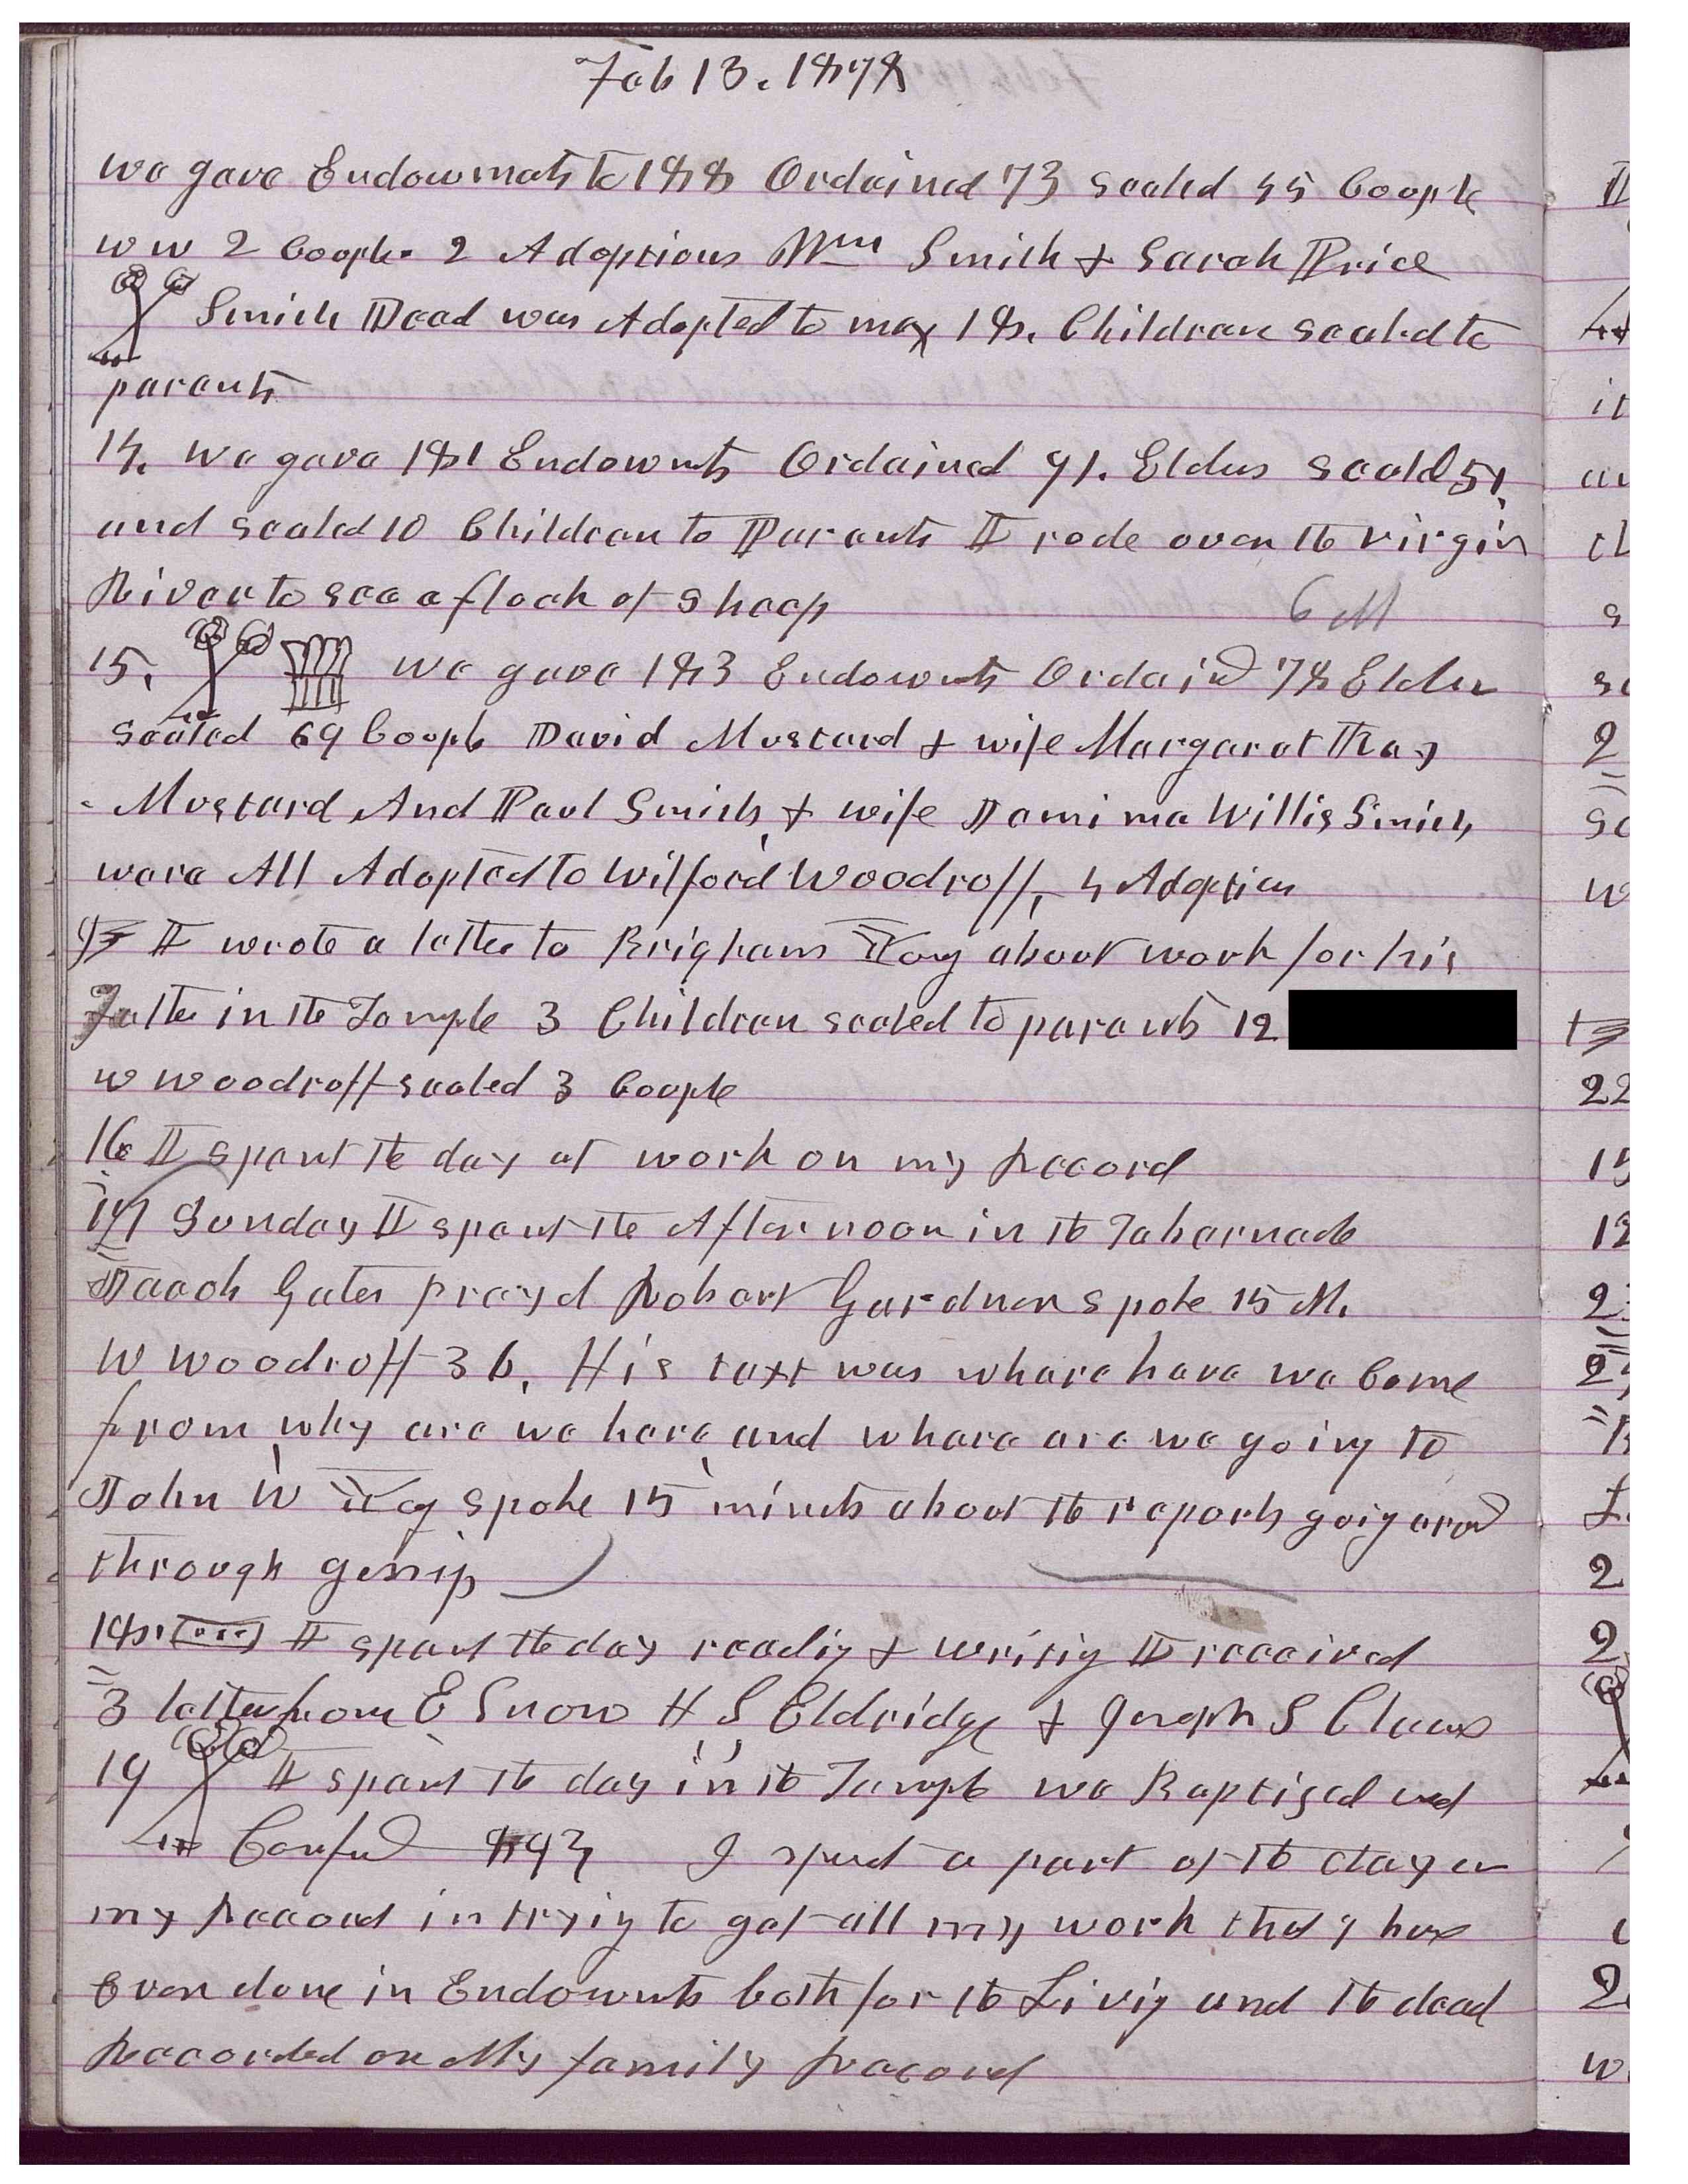 Feb 13. 1878
we gave Endowmets to 188 Ordained 73 sealed 55 Coople
W W 2 Coople. 2 Adoptions Wm Smith & Sarah Price
Smith Dead was Adopted to me 18. Children sealed to
parents
14. we gave 181 Endowmts Ordained 91. Elders seald 51.
and sealed 10 Children to Parents I rode over the virgin
River to see a flock of sheep 6 M
15. we gave 183 Endowmts Ordaind 78 Elders
sealed 69 Coople David Mustard & wife Margaret
Mustard And Paul Smith, & wife Jemima Willis Smith
were All Adopted to Wilford Woodruff, 4 Adoption
I wrote a letter to Brigham Young about work for his
Father in the Temple 3 Children sealed to parents 12
W Woodruff sealed 3 Coople
16 I spent the day at work on my Record
17 Sunday I spent the After noon in the Tabernacle
Jacob Gates prayed Robert Gardner spoke 15 M.
W Woodruff 36, His text was where have we Come
from, why are we here, and where are we going to
John W Young spoke 15 minuts about the reports going aroud
through gossip
18. I spent the day readig & writig I received
3 letters from E Snow H S Eldridge & Joseph S Claws
19 I spent the day in the Temple we Baptised and
Confirmd 893 I spent a part of the day on
my Record in tryig to get all my work that I have
Ever done in Endowmts both for the Livig and the dead
Recorded on My family Record